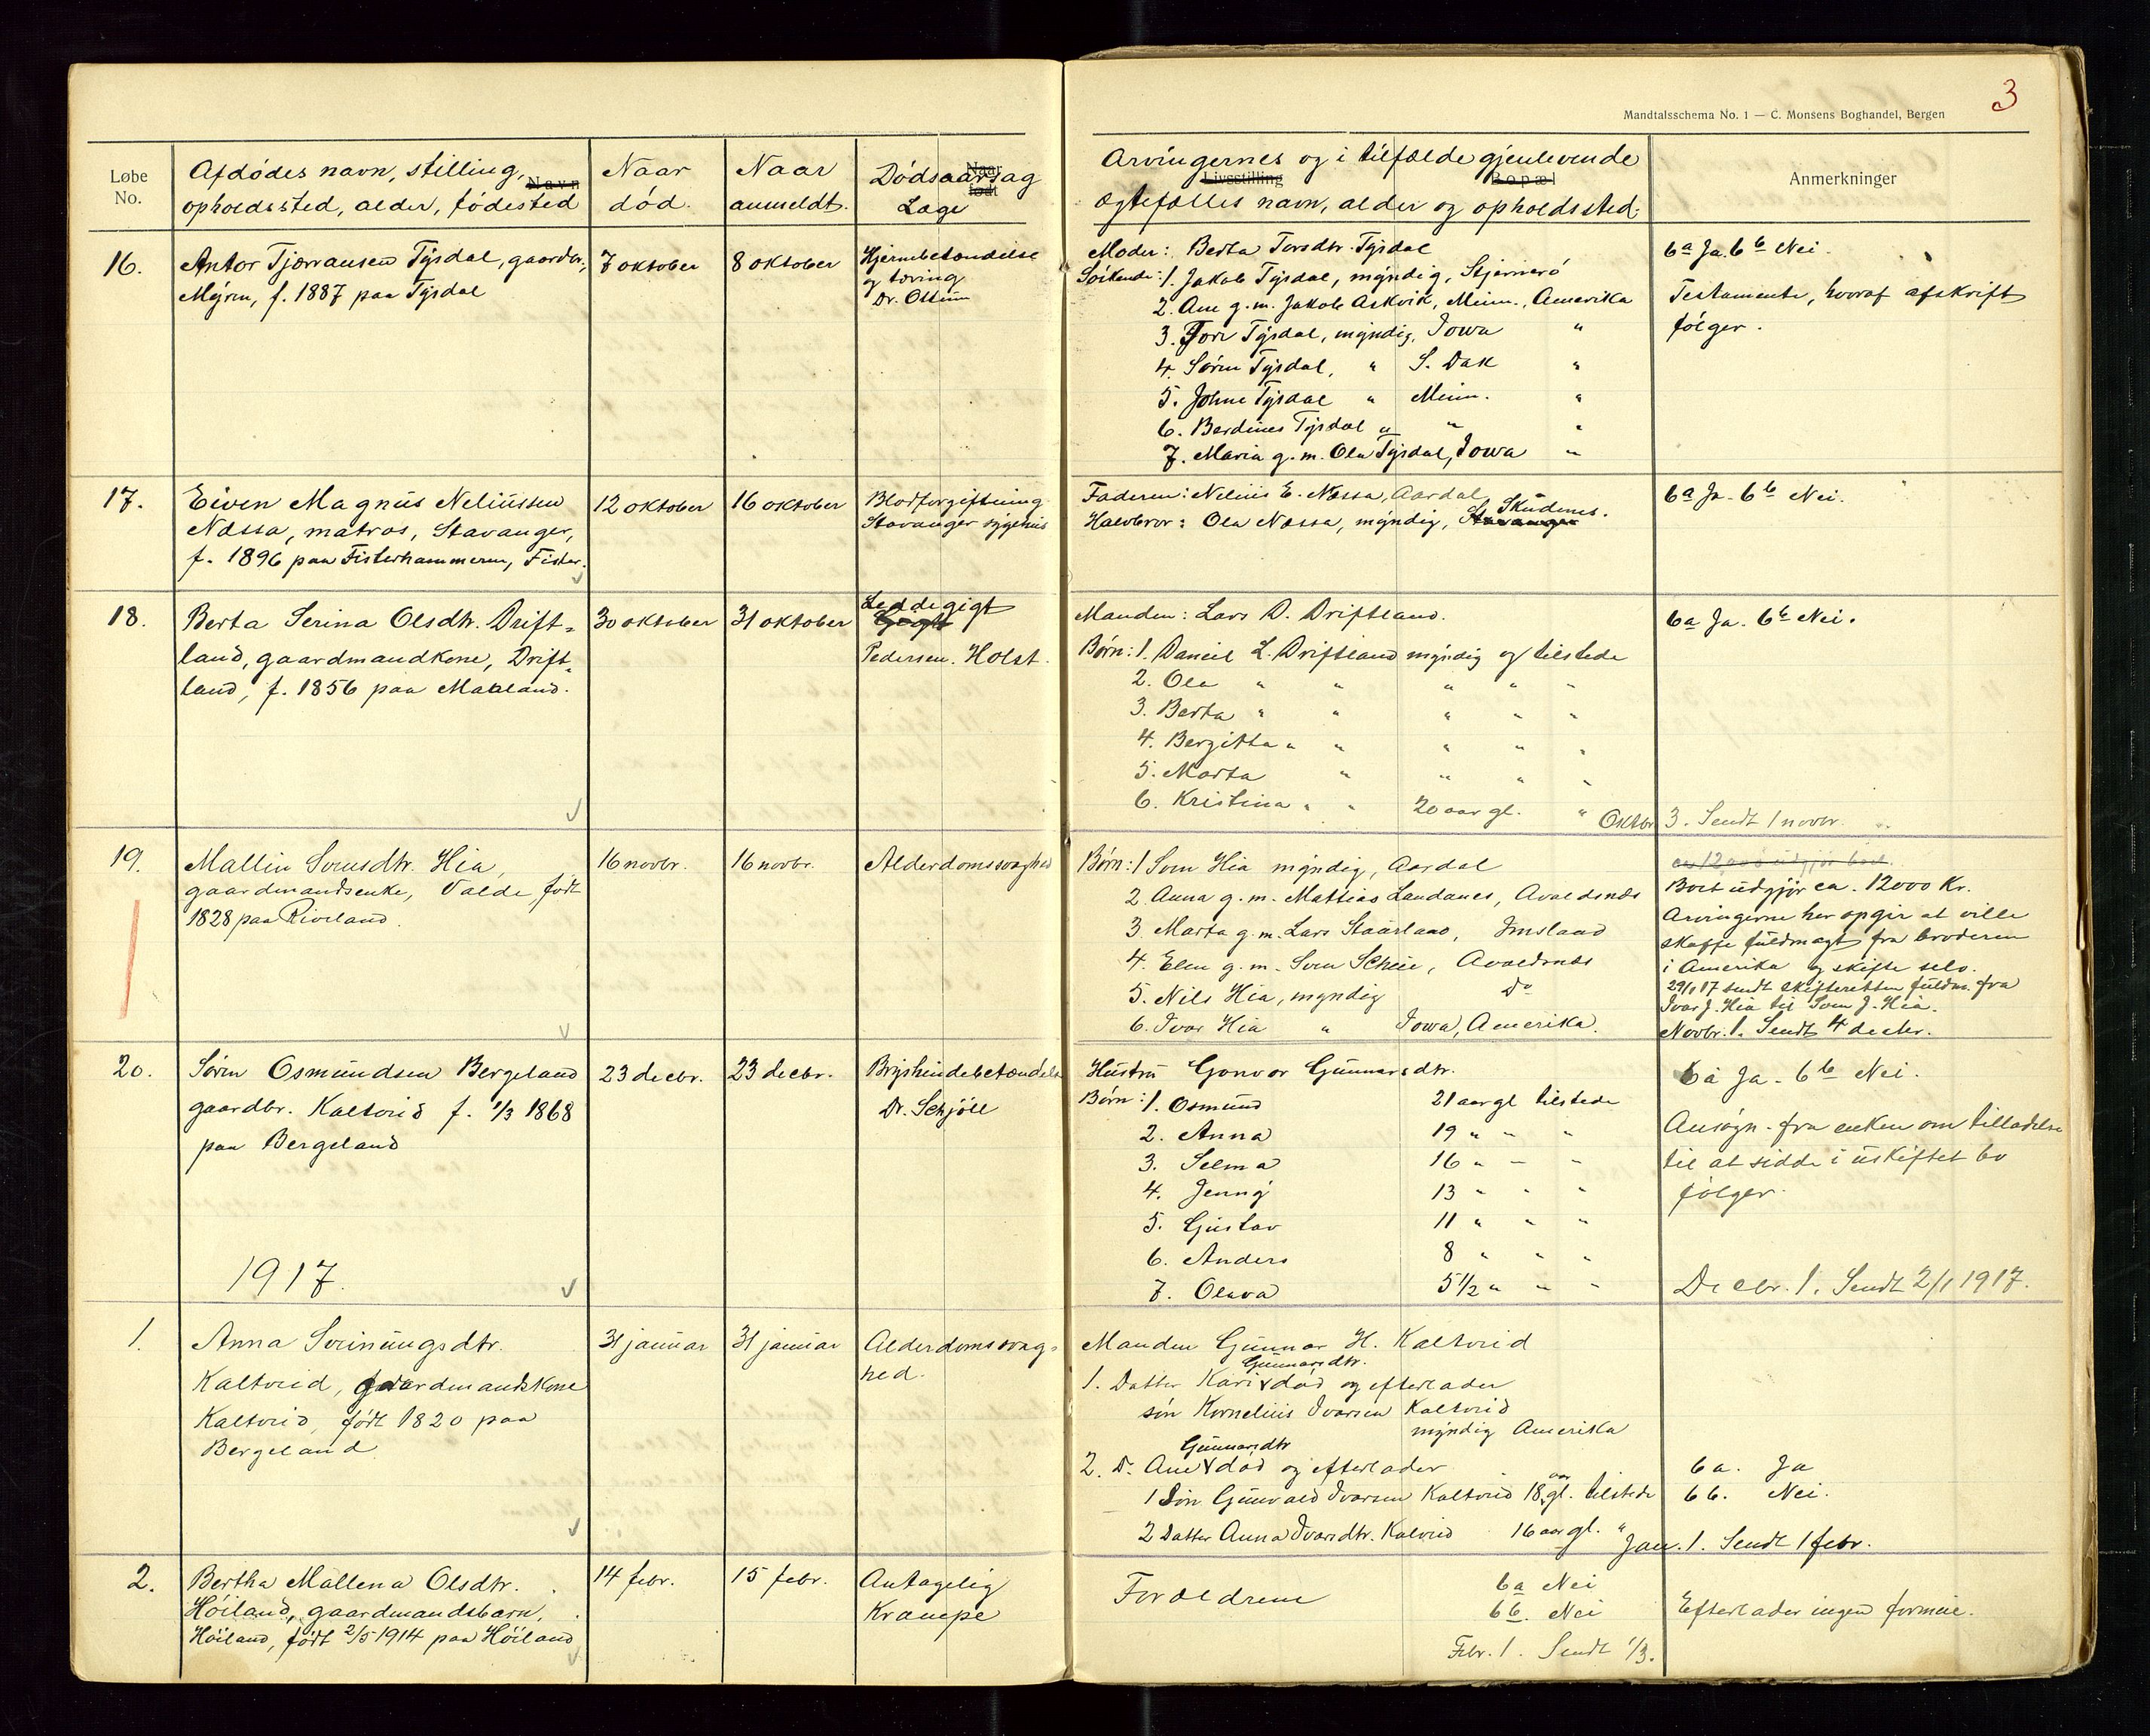 3
Mandtalsschema No. 1 — C. Monsens Boghandel, Bergen
Løbe No.
Afdødes navn, stilling, Navn
opholdssted, alder, fødested
Naar død.
Naar anmeldt.
Dødsaarsag Naar født
Læge
Arvingernes og i tilfælde gjenlevende
Livsstilling Bopæl
ægtefælles navn, alder og opholdssted.
Anmerkninger
16.
Antor Tjøravausen Tysdal, gaardbr.,
Myren, f. 1887 paa Tysdal
7 oktober
8 oktober
Hjernebetændelse
og tæring
Dr. Ottum
Moder: Berta Torsdtr. Tysdal
Søskende: 1. Jakob Tysdal, myndig, Stjernerø
2. Ane g. m. Jakob Askvik, Minn., Amerika
3. Tore Tysdal, myndig, Iowa "
4. Søren Tysdal, " S. Dak "
5. Johne Tysdal " Minn. "
6. Berdines Tysdal " " "
7. Maria g. m. Ola Tysdal, Iowa "
6a Ja. 6b Nei.
Testamente, hvoraf afskrift
følger.
17.
Eiven Magnus Neliussen
Næssa, matros, Stavanger,
f. 1896 paa Fisterhammeren, Fister.
12 oktober
16 oktober
Blodforgiftning
Stavanger sygehus
Faderen: Nelius E. Næssa, Aardal
Halvbror: Ola Næssa, myndig, Stavanger Skudenes.
6a Ja. 6b Nei.
18.
Berta Serina Olsdtr. Drift-
land, gaardmandkone, Drift-
land, f. 1856 paa Maaland.
30 oktober
31 oktober
Leddegigt
Gigt
Pedersen. Holst.
Manden: Lars D. Driftland.
Børn: 1. Daneil L. Driftland myndig og tilstede
2. Ola " " " " "
3. Berta " " " " "
4. Bergitta " " " " "
5. Marta " " " "
6. Kristina " " 20 aar gl. "
6a Ja. 6b Nei.
Oktbr. 3. Sendt 1 novbr.
19.
Mallin Svensdtr. Hia,
gaardmandsenke, Valde, født
1828 paa Riveland.
16 novbr.
16 novbr.
Alderdomssvaghed
Børn: 1 Sven Hia myndig, Aardal
2. Anna g. m. Mattias Landanes, Avaldsnæs
3. Marta g. m. Lars Staurland, Imsland
4. Elen g. m. Sven Scheie, Avaldsnæs
5. Nils Hia, myndig Do
6. Ivar Hia " Iowa, Amerika.
Boet udgjør ca. 12000 Kr.
Arvingerne her opgir at ville
skaffe fuldmagt fra broderen
i Amerika og skifte selv.
29/1 17 sendt skifteretten fuldm. fra
Ivar J. Hia til Sven J. Hia.
Novbr. 1. Sendt 4 decbr.
20.
Søren Osmundsen Bergeland
gaardbr. Kaltveid f. 1/3 1868
paa Bergeland
23 decbr.
23 decbr.
Brysthindebetændelse
Dr. Schjöll
Hustru Gonvor Gunnarsdtr.
Børn: 1. Osmund 21 aar gl tilstede
2. Anna 19 " " "
3. Selma 16 " " "
4. Jenny 13 " " "
5. Gustav 11 " " "
6. Anders 8 " " "
7. Olava 5 1/2 " " "
6a Ja. 6b Nei.
Ansøgn. fra enken om tilladelse
til at sidde i uskiftet bo
følger.
Decbr. 1. Sendt 2/1 1917.
1917.
1.
Anna Sveinungsdtr.
Kaltveid, gaardmandskone
Kaltveid, født 1820 paa
Bergeland
31 januar
31 januar
Alderdomssvag-
hed.
Manden Gunnar H. Kaltveid
Gunnarsdtr.
1. Datter Kari død og efterlader
søn Kornelius Ivarsen Kaltveid
myndig Amerika
Gunnarsdtr
2. D. Ane død og efterlader
1 Søn Gunvald Ivarsen Kaltveid 18 aar gl. tilstede
2 Datter Anna Ivarsdtr. Kalveid 16 aar gl. "
6a. Ja
6b. Nei.
Jan. 1. Sendt 1 febr.
2.
Bertha Mallena Olsdtr.
Høiland, gaardmandsbarn,
Høiland, født 2/5 1914 paa Høiland
14 febr.
15 febr.
Antagelig
Krampe
Forældrene
6a Nei
6b. Nei
Febr. 1. Sendt 1/3.
Efterlader ingen formue.